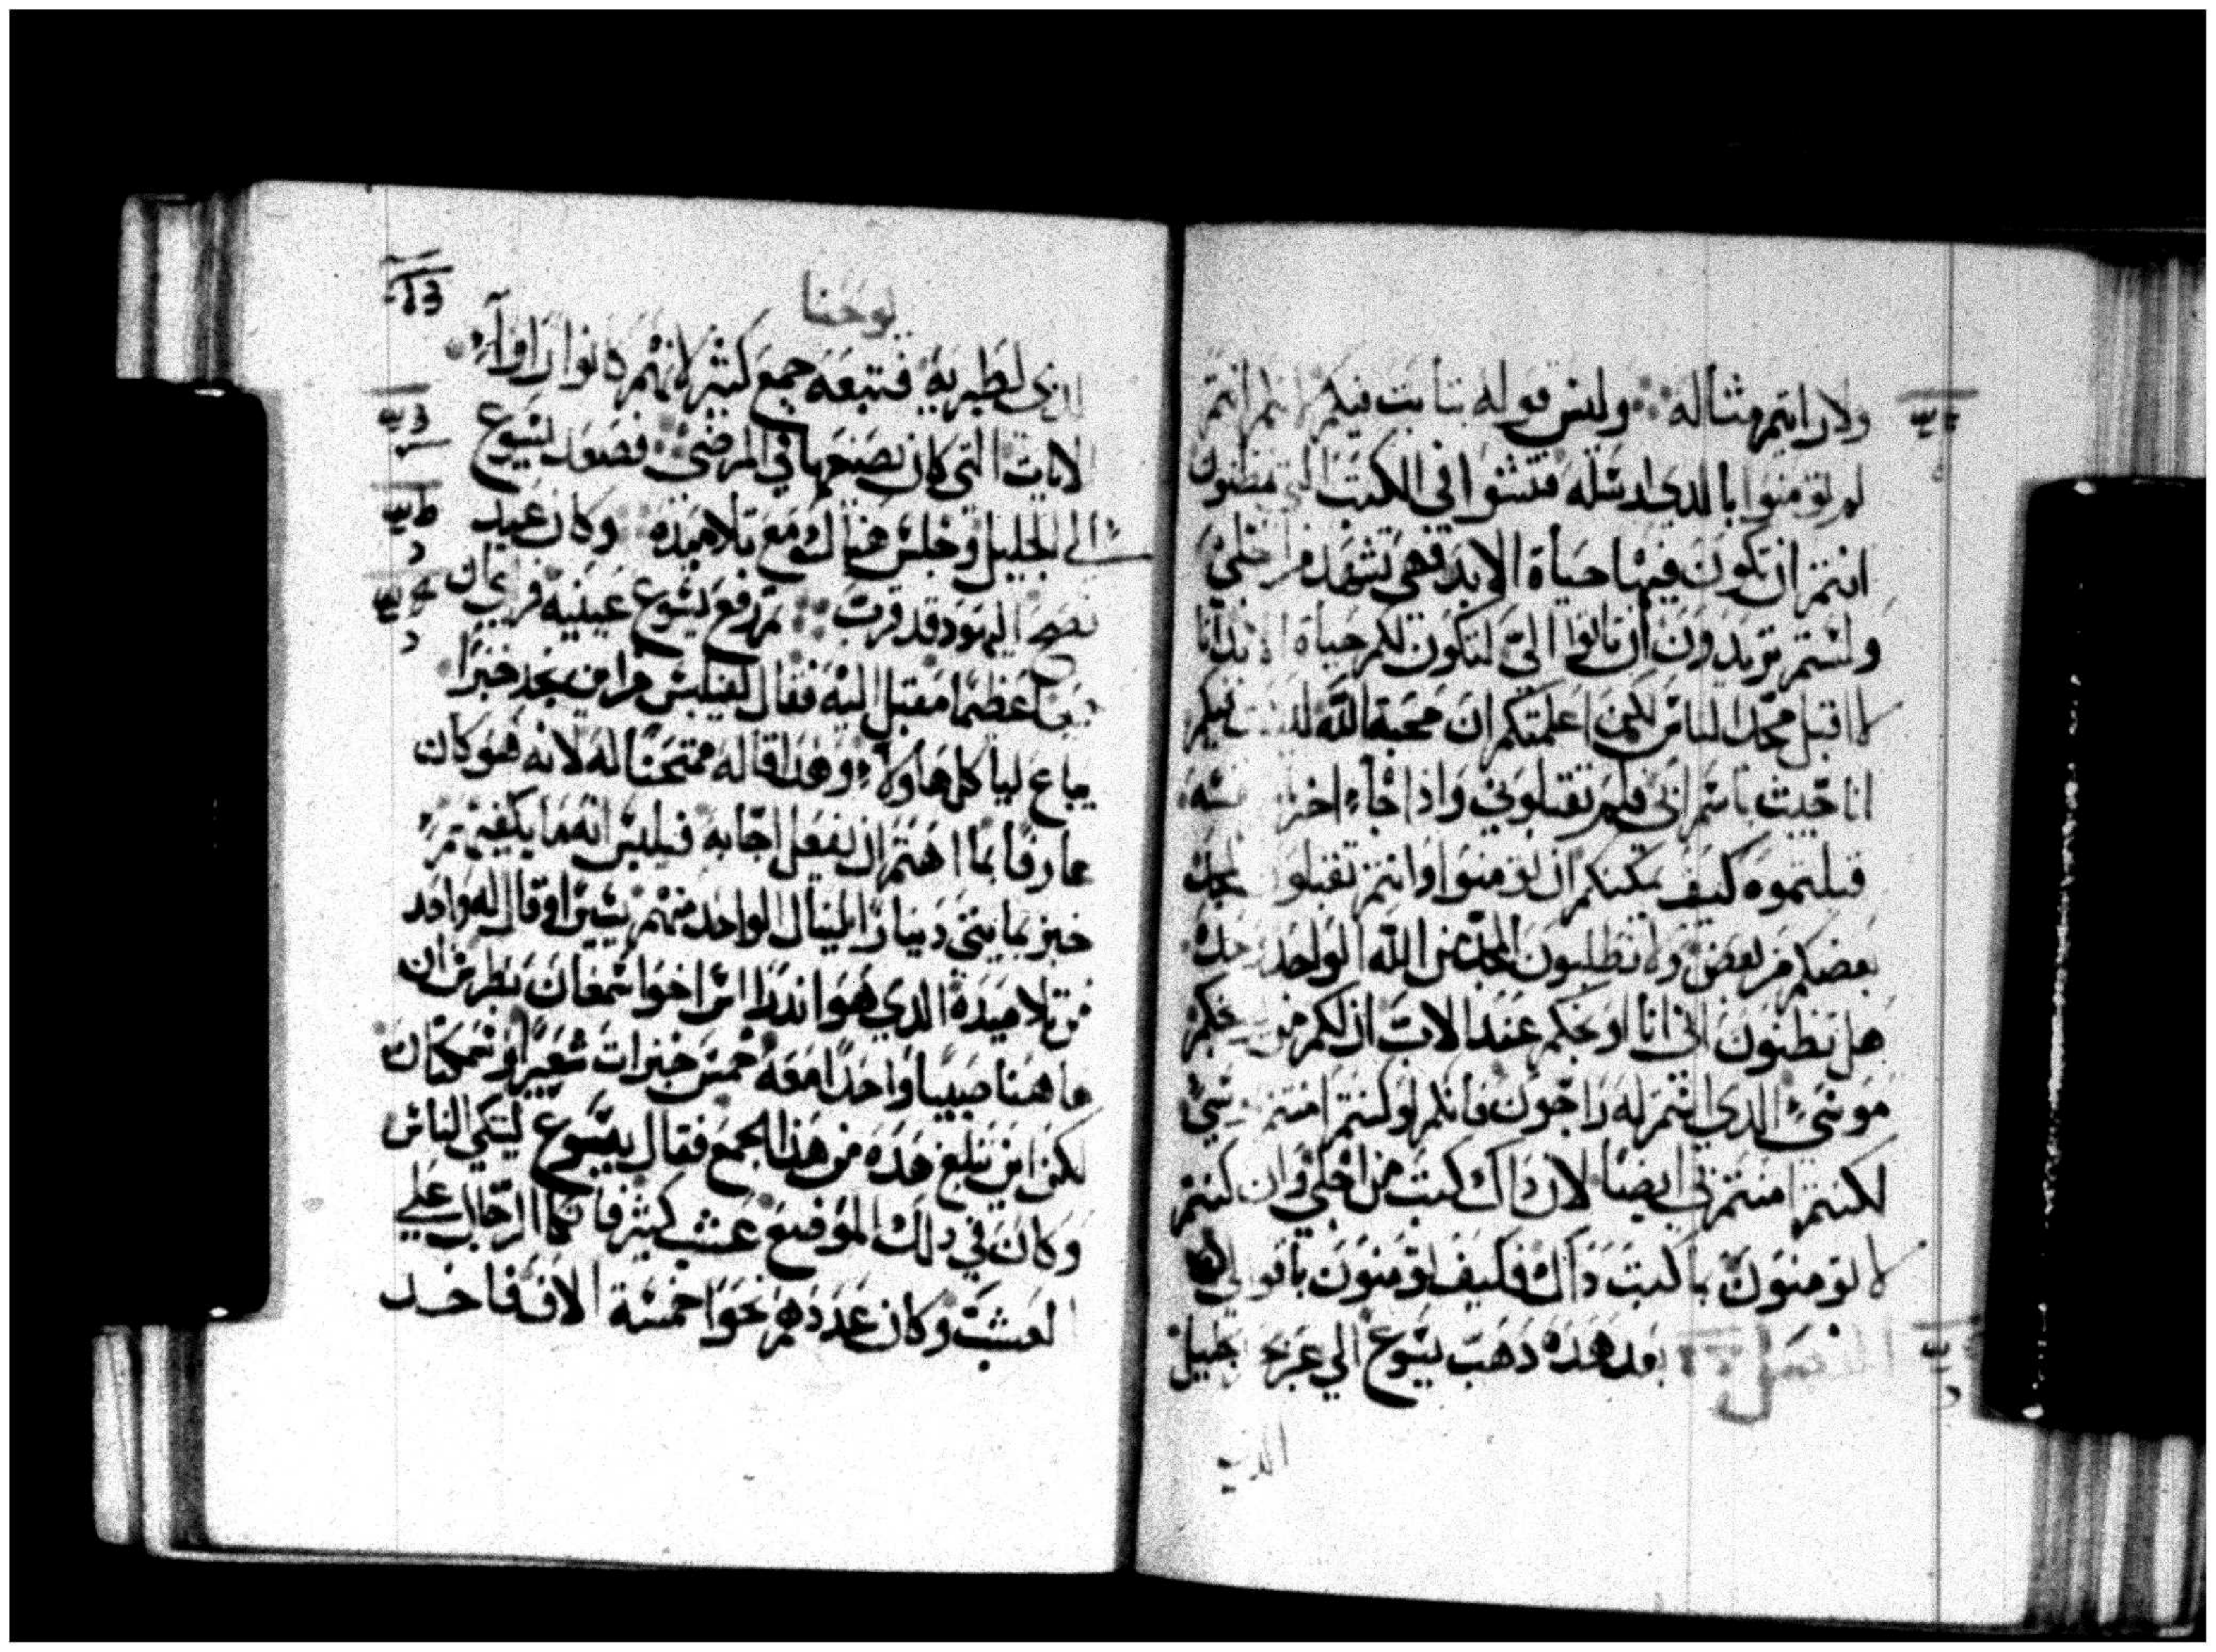 ولا رايتم مثاله وليس قوله بثابت فيكم انتم
لم تومنوا بالذي ارسله فتشوا في الكتب التي تظنون
انتم ان تكون فيها حياة الابد فهي تشهد من اجلي
ولستم تريدون ان تاتوا الي لتكون لكم حياة انا
لا اقبل مجدا الناس لكن اعلمتكم ان محبة الله ليست فيكم
انا جيت باسم ابي فلم تقبلوني واذا جاء اخر
قبلتموه كيف يمكنكم ان تومنوا وانتم تقبلون المجد
بعضكم من بعض ولا تطلبون المجد من الله الواحد وحده
هل تظنون اني انا اوبخكم عند الاب ان لكم من يبخكم
موسى الذي انتم له راجون فانكم لو كنتم امنتم بموسي
لكنتم امنتم بي ايضا لان ذاك كتب من اجلي وان كنتم
لا تومنون بما كتب ذاك فكيف تومنون باقوالي
الفصل بعد هذه ذهب يسوع الي عبر الجليل
الذي
يوحنا
الذي لطبرية فتبعه جمع كثير لانهم كانوا راوا
الايات التي كان يصنعها في المرضي فصعد يسوع
الي الجليل وجلس هناك مع تلاميذه وكان عيد
فصح اليهود قد قرب ثم رفع يسوع عينيه فراي ان
جمعا عظيما مقبل اليه فقال لفيلبس من اين نجد خبزا
يباع ليأكل هاولاء وهذا قاله ممتحنا له لانه هو كان
عارفا بما اهتم ان يفعل اجابه فيلبس انه ما يكفيهم
خبز بمايتي دينارا لينال الواحد منهم يسيرا وقال له واحد
من تلاميذه الذي هو اندراوس اخوا سمعان بطرس ان
هاهنا صبيا واحدا معه خمس خبزات شعير وسمكتان
لكن اين تبلغ هذه من هذا الجمع فقال يسوع ليتكي الناس
وكان في ذلك الموضع عشب كثير فاتكا الرجال علي
العشب وكان عددهم نحوا خمسة الاف فاخد